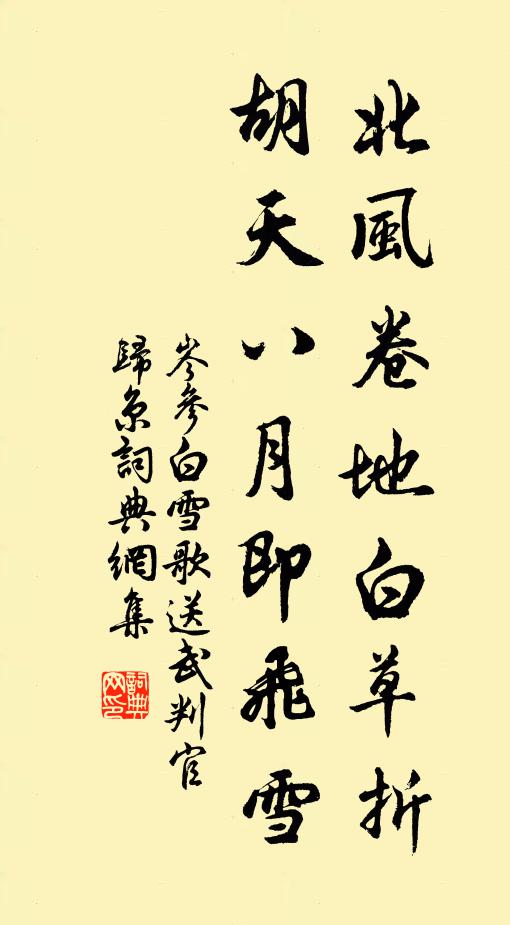 北風卷地白草折
胡天八月即飛雪
岑參白雪歌送武判官
歸京詞典網集
詞典
网印